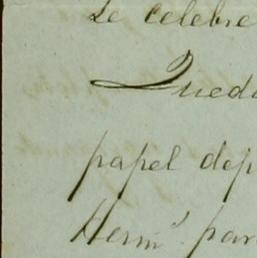 se celebre
Qued
papel dep
Herm.ˢ par